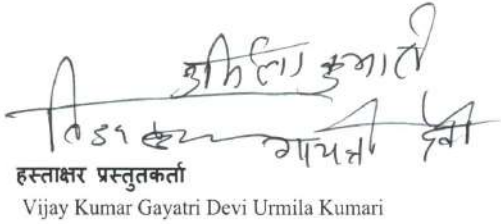 उर्मिला कुमारी
विजय कुमार गायत्री देवी
हस्ताक्षर प्रस्तुतकर्ता
Vijay Kumar Gayatri Devi Urmila Kumari